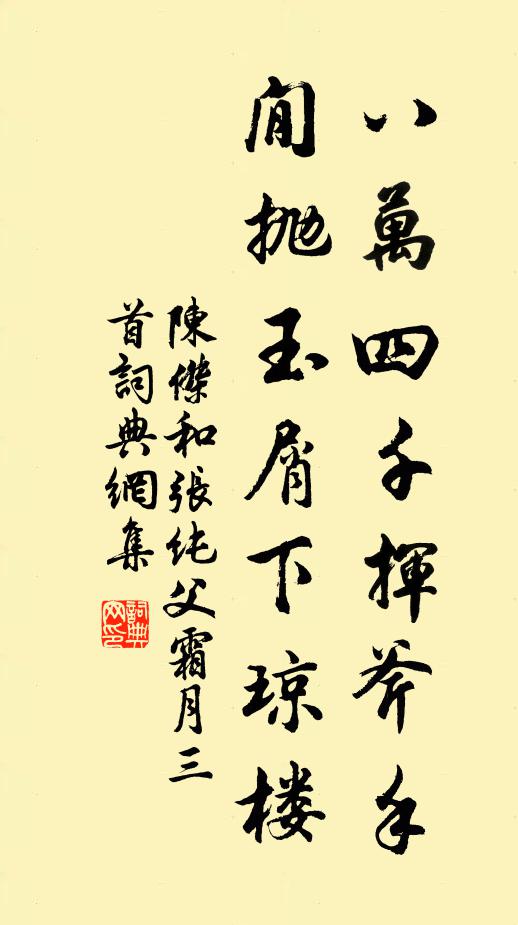 八萬四千揮斧手
閒抛玉屑下琼楼
陳傑和張純父霜月三
首詞典網集
詞典
网印